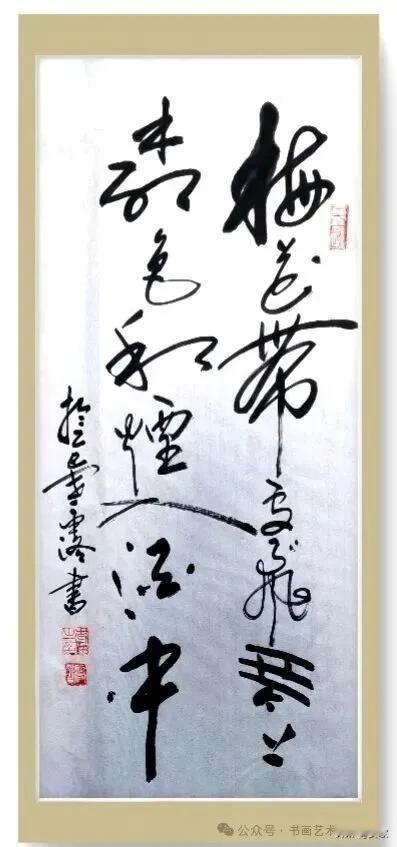 梅花帶雪飛琴上
柳色和煙入酒中
書
公众号·书画艺术